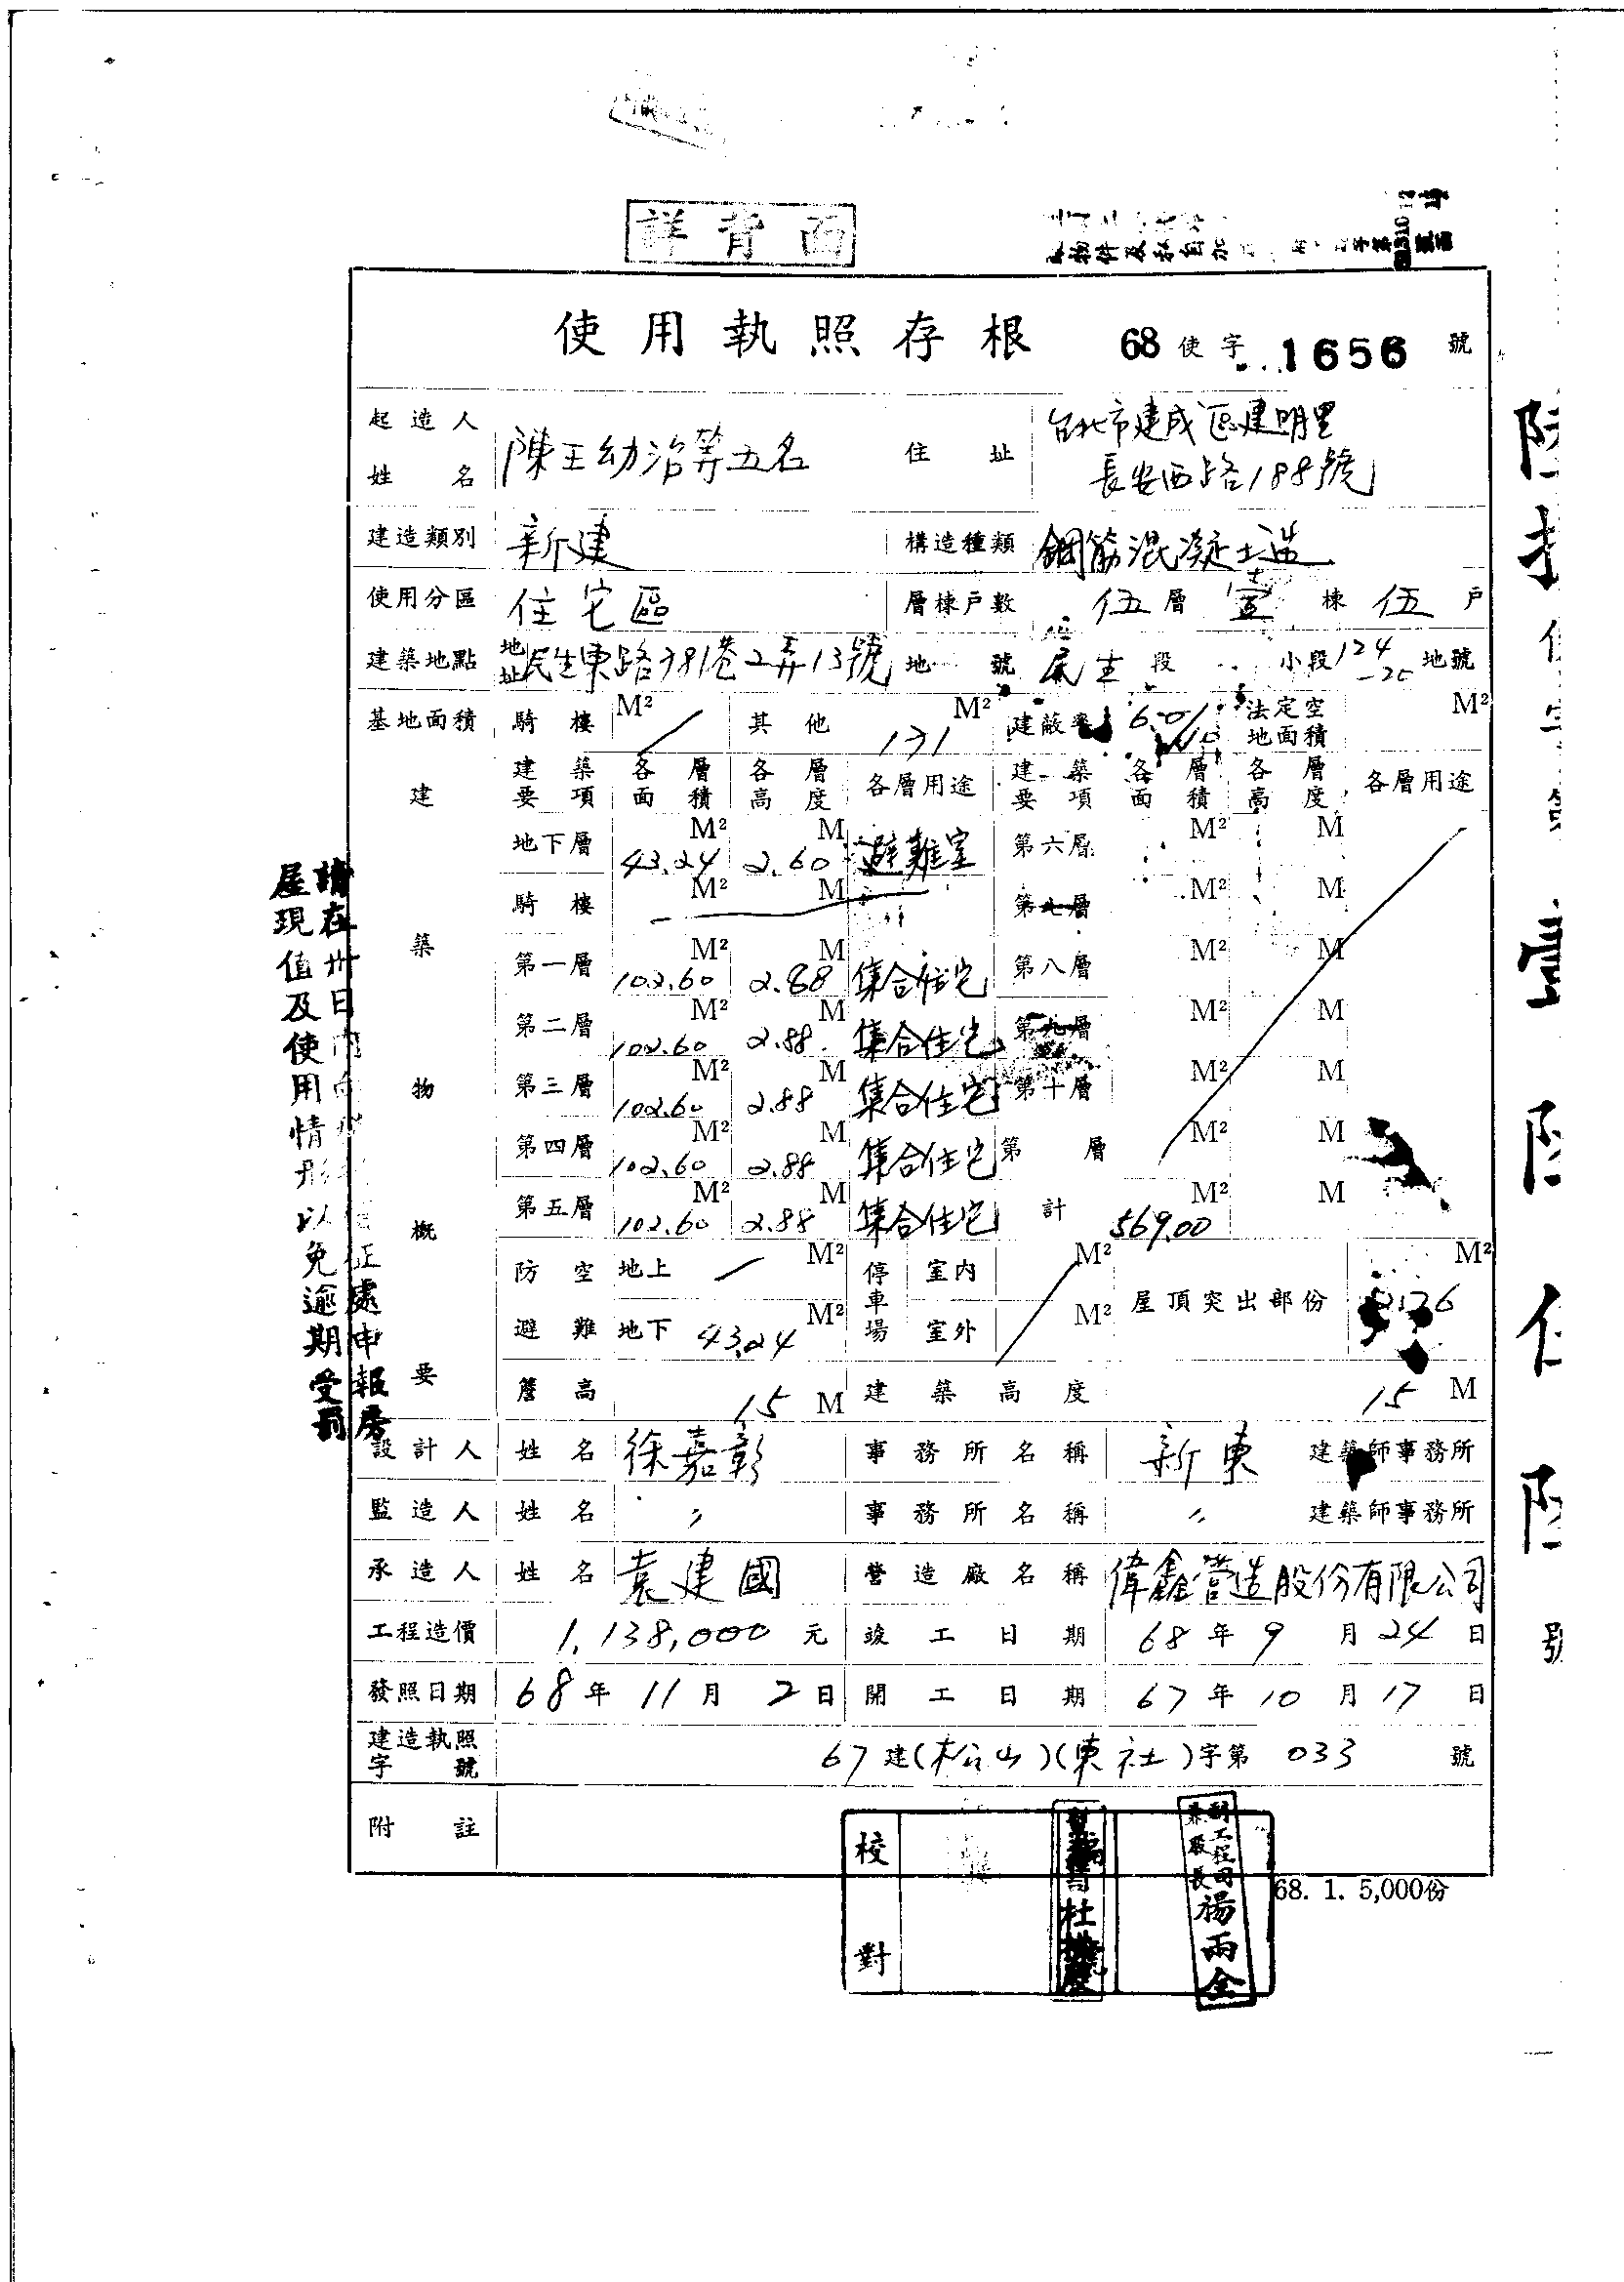 詳背面
使用執照存根 68使字 1656 號
起造人姓名 陳王幼治等五名 住址 台北市建成區建明里
長安西路188號
建造類別 新建 構造種類 鋼筋混凝土造
使用分區 住宅區 層棟戶數 伍層 壹棟 伍戶
建築地點 地址 民生東路781巷2弄13號 地號 民生段 小段 124 地號
基地面積 騎樓 M² 其他 171 M² 建蔽率 法定空地面積 M²
建築物概要
建築要項 各層面積 各層高度 各層用途 建築要項 各層面積 各層高度 各層用途
地下層 43.24 M² 2.60 M 避難室 第六層 M² M
騎樓 M² M 第七層 M² M
第一層 102.60 M² 2.88 M 集合住宅 第八層 M² M
第二層 102.60 M² 2.88 M 集合住宅 第九層 M² M
第三層 102.60 M² 2.88 M 集合住宅 第十層 M² M
第四層 102.60 M² 2.88 M 集合住宅 第 層 M² M
第五層 102.60 M² 2.88 M 集合住宅 計 569.00 M² M
防空避難 地上 M² 停車場 室內 M² 屋頂突出部份 M²
地下 43.24 M² 室外 M²
簷高 15 M 建築高度 15 M
設計人 姓名 徐嘉彰 事務所名稱 新東 建築師事務所
監造人 姓名 〃 事務所名稱 〃 建築師事務所
承造人 姓名 袁建國 營造廠名稱 偉鑫營造股份有限公司
工程造價 1,138,000 元 竣工日期 68年9月24日
發照日期 68年11月2日 開工日期 67年10月17日
建造執照字號 67建(松山)(東社)字第 033 號
附註
校對
副工程司
兼股長
楊雨全
68. 1. 5,000份
請在卅日內向 處申報房
屋現值及使用情形以免逾期受罰